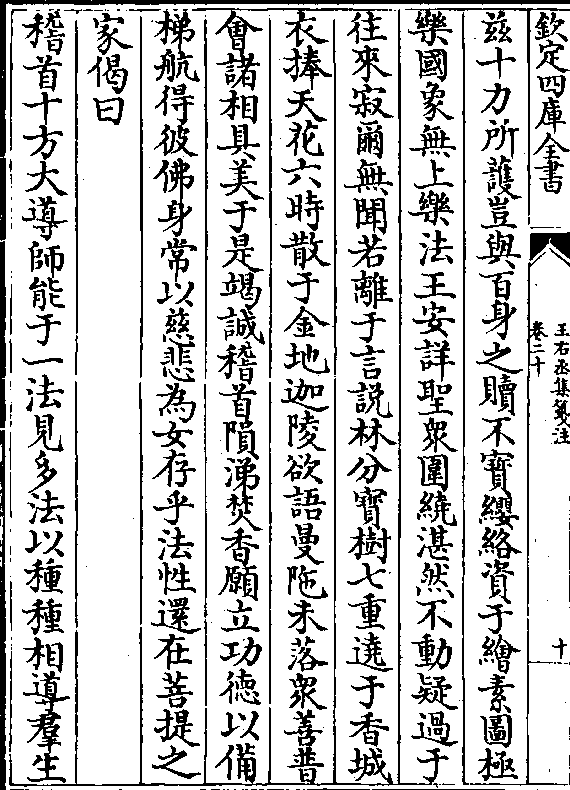 欽定四庫全書
王右丞集箋注
卷二十
十
玆十力所護豈與百身之贖不寶纓絡資于繪素圖極
樂國象無上樂法王安詳聖衆圍繞湛然不動疑過于
往來寂爾無聞若離于言說林分寶樹七重遶于香城
衣捧天花六時散于金地迦陵欲語曼陁未落衆善普
會諸相具美于是竭誠稽首隕涕焚香願立功德以備
梯航得彼佛身常以慈悲為女存乎法性還在菩提之
家偈曰
稽首十方大導師能于一法見多法以種種相導羣生